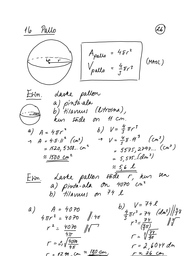 16 Pallo
26
A pallo = 4πr²
V pallo = 4/3 πr³
(MAOL)
Esim. Laske pallon
a) pinta-ala
b) tilavuus (litroina),
kun säde on 11 cm.
a) A = 4πr²
A = 4·π·11² (cm²)
= 1520,5308... cm²
≈ 1500 cm²
b) V = 4/3 πr³
V = 4/3 ·π·11³ (cm³)
= 5575,2797... (cm³)
= 5,575... (dm³)
≈ 5,6 l
Esim. Laske pallon säde r, kun sen
a) pinta-ala on 4070 cm²
b) tilavuus on 74 l
a) A = 4070 cm²
4πr² = 4070
r² = 4070/4π
b) V = 74 l
4/3 πr³ = 74 (dm³)
r = 2,6044 dm
r ≈ 26 cm